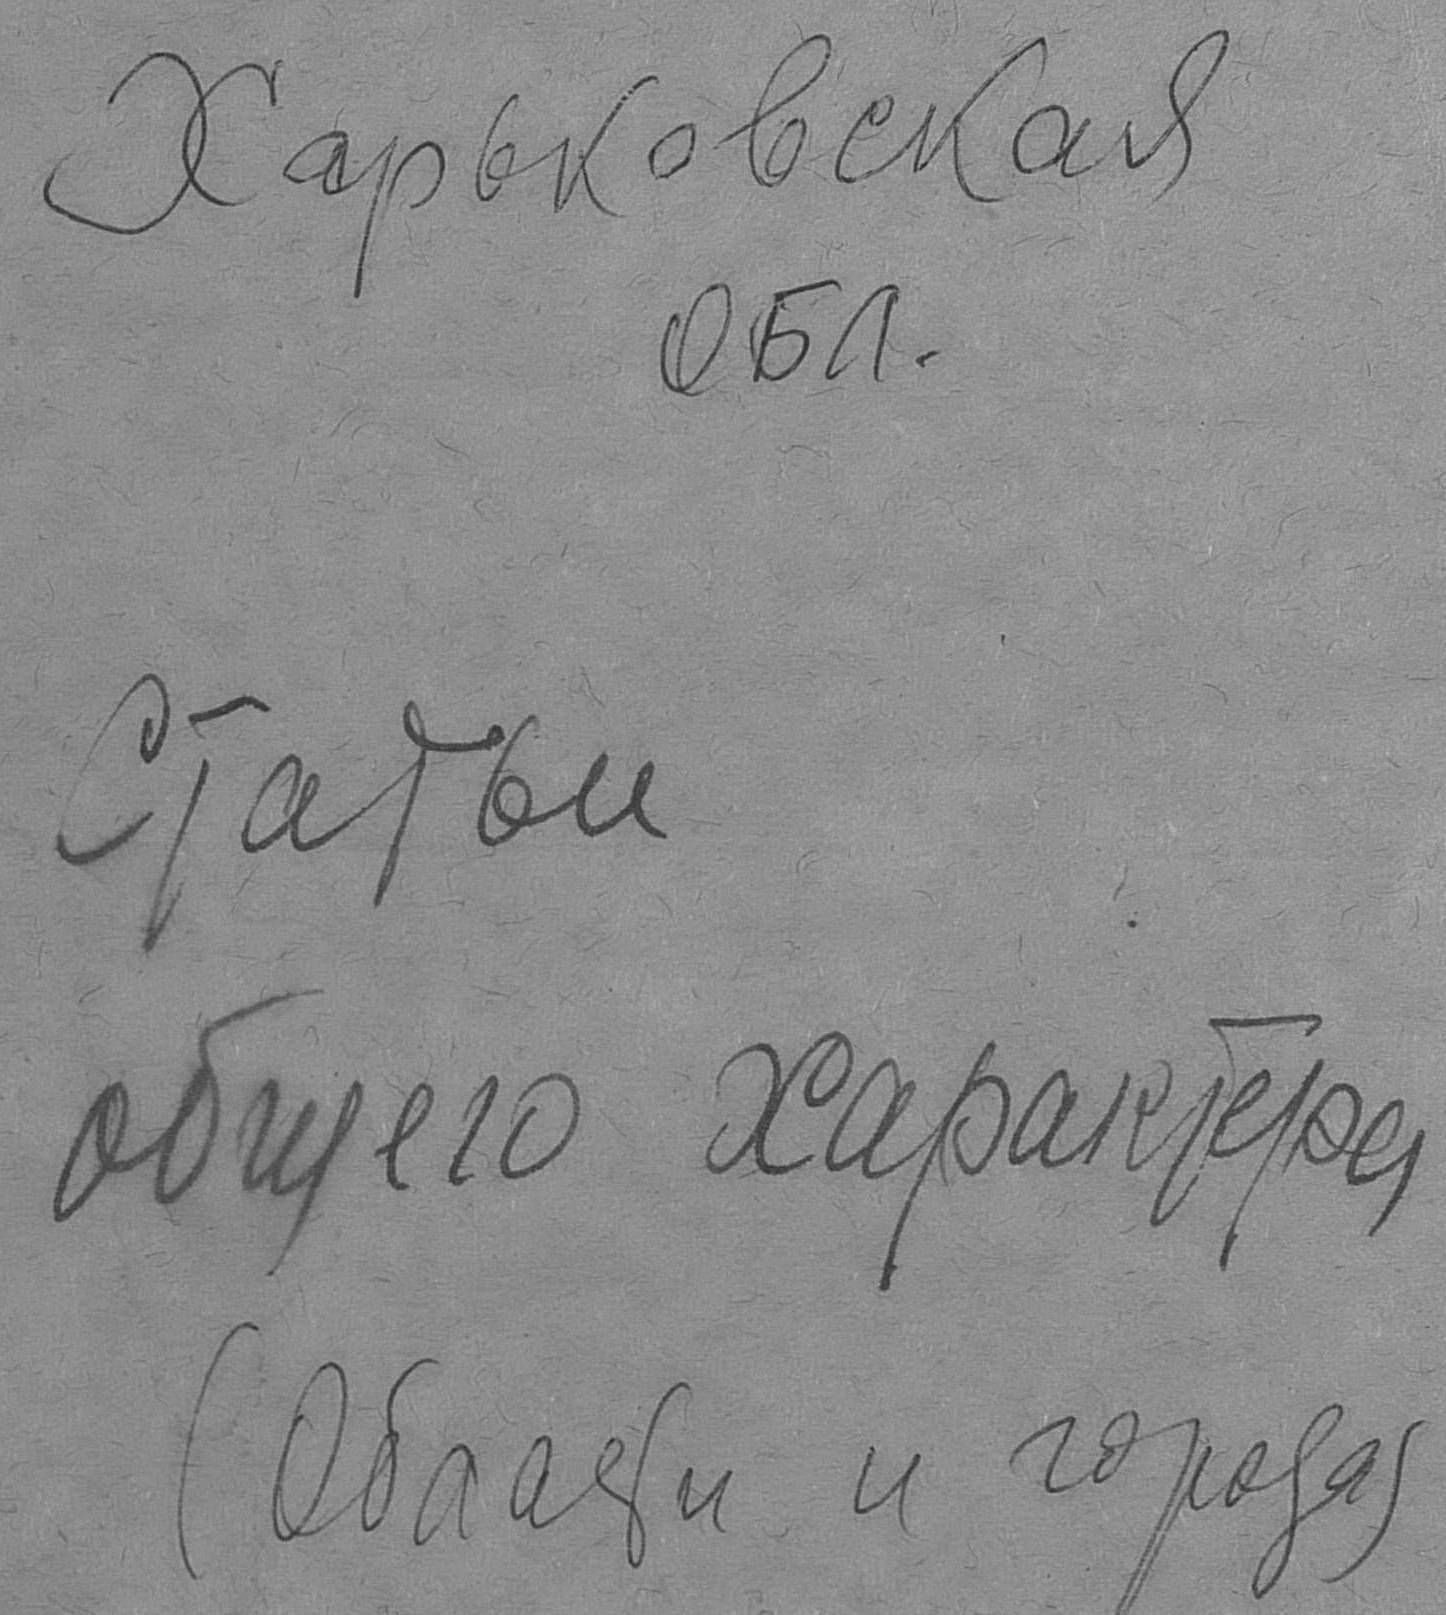 Харьковская
обл.
Статьи
общего характера
(Области и города)